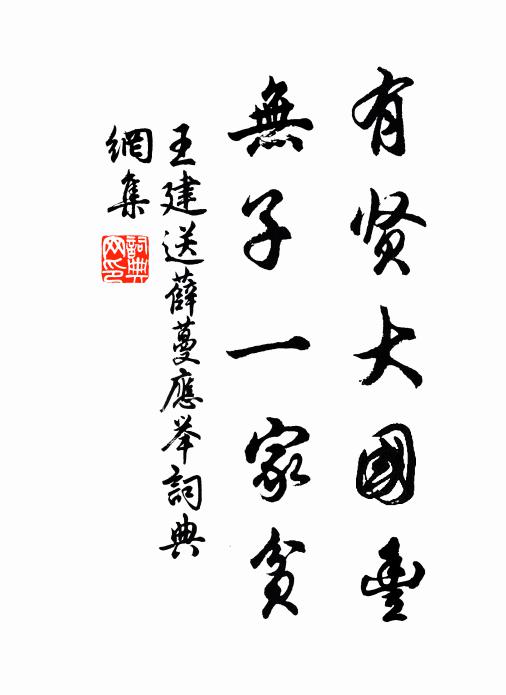 有贤大國豊
無子一家貧
王建送薛蔓應举詞典
網集
詞典網印